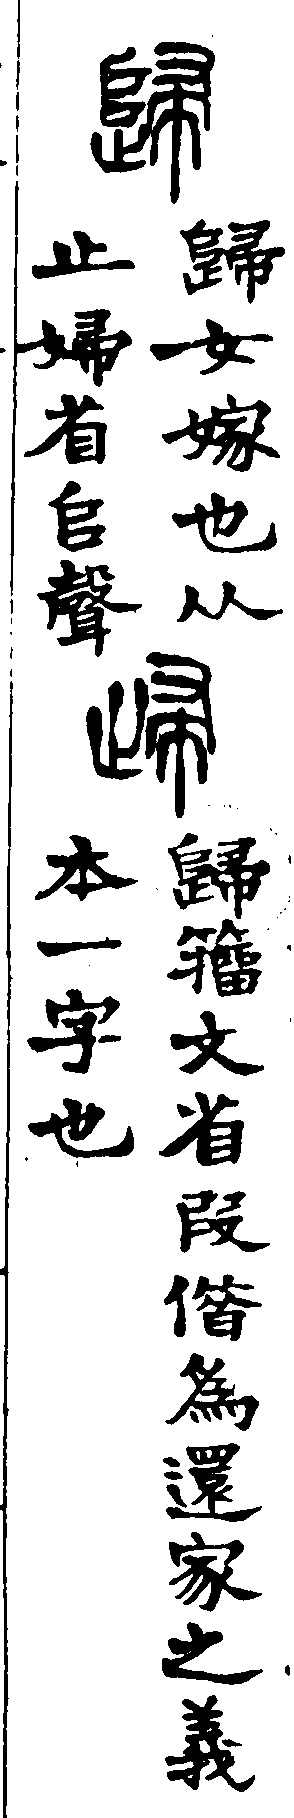 歸
歸女嫁也从
止婦省𠂤聲
㱕
歸籒文省叚借為還家之義
本一字也